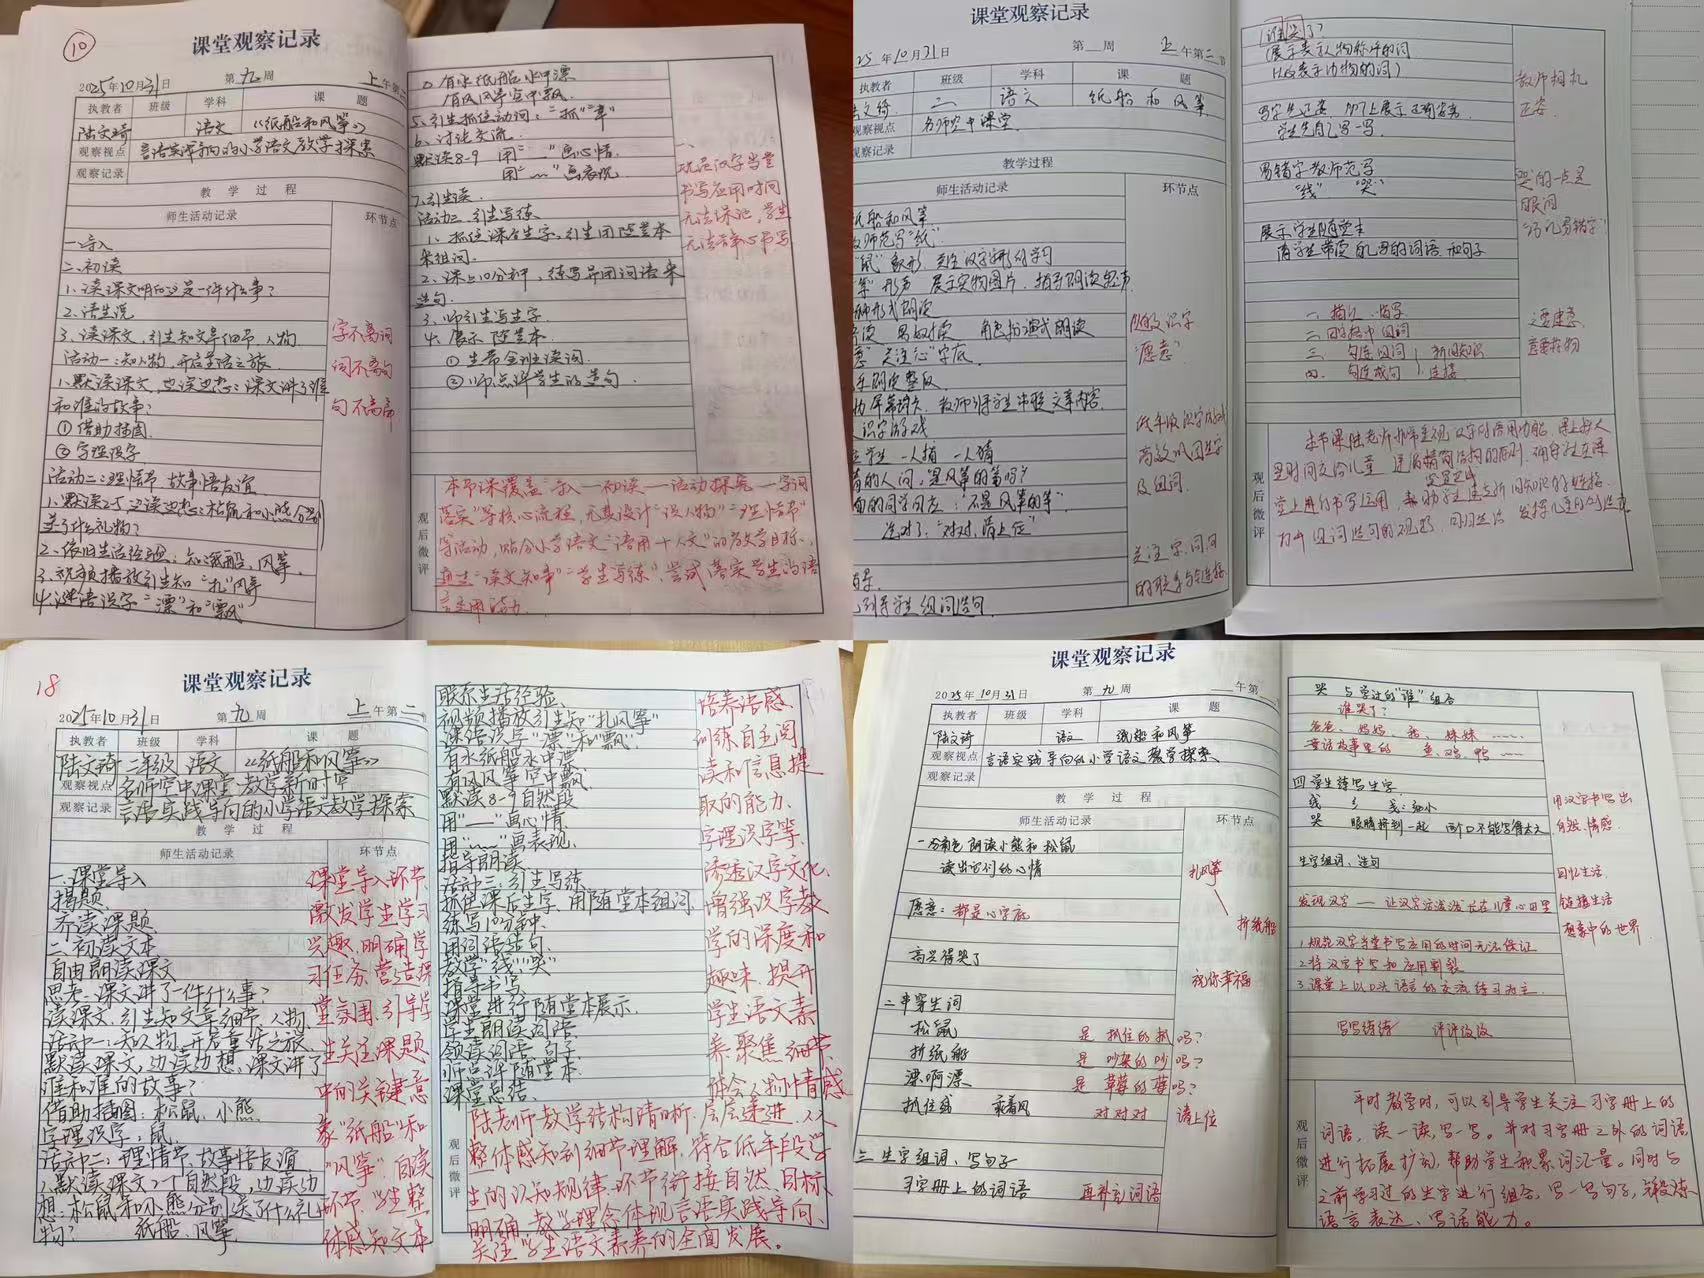 10
课堂观察记录
2025年10月31日 第九周 上午第
执教者 班级 学科 课题
陆文琦 语文 《纸船和风筝》
观察视点 言语实践导向的小学语文教学探索
观察记录
教学过程
师生活动记录 环节点
一、导入
二、初读
1、读课文明白这是一件什么事?
2、请生说
3、读课文,引生知文章细节,人物
活动一:知人物,开启童话之旅
1、默读课文,边读边想:课文讲了谁
和谁的故事?
①借助插图
②字理识字
活动二:理情节 故事悟友谊
1、默读2-7,边读边想:松鼠和小熊分别
送了什么礼物?
2、依旧生活经验:知纸船、风筝
3、视频播放引生知“扎”风筝
4、谜语识字“漂”和“飘”
字不离词
词不离句
句不离篇
有水纸船水中漂
有风风筝空中飘
5、引生抓住动词:“抓”“幸”
6、讨论交流
默读8-9 用“—”画心情
用“﹏”画表现
7、引生读
活动三 引生写练
1、抓住课后生字,引生用随堂本
来组词
2、课上10分钟,练写并用词语来
造句
3、师引生写生字
4、展示随堂本
①生带全班读词
②师点评学生的造句
一、
规范汉字当堂
书写应用时间
无法保证,学生
无法静心书写
观后微评
本节课覆盖“导入—初读—活动探究—字词
落实”等核心流程,尤其设计“识人物”“理情节”
等活动,贴合小学语文“语用+人文”的教学目标,
通过“读文知事”“学生写练”,尝试落实学生的语
言运用活动。
课堂观察记录
25年10月31日 第 周 上午第二节
执教者 班级 学科 课题
陆文琦 二 语文 纸船和风筝
观察视点 名师空中课堂
观察记录
教学过程
师生活动记录 环节点
纸船和风筝
教师范写“纸”
“鼠”象形 关注汉字字形的学习
“筝”形声 展示实物图片,指导朗读轻声
男女对读 角色扮演式朗读
关注“心”字底
识字游戏
一人抽 一人猜
的人问:是风筝的筝吗?
面的同学回应:“不是风筝的筝”
连对了:“对对,请上位”
引导学生组词造句
随文识字
“愿意”
低年级识字游戏
高效巩固生字
及组词
关注字、词、句
的联系与链接
谁哭了?
(展示表示人物称呼的词
以及表示动物的词)
写字先正姿 PPT上展示正确字姿
学生先自己写一写
易错字教师范写
“线” “哭”
展示学生随堂本
请学生带读自己写的词语和句子
一、描红 描写
二、田字格中组词
三、勾连组词 新旧知识
四、勾连成句 连接
教师相机
正姿
哭的一点是
眼泪
巧记易错字
观后微评
本节课陆老师非常重视汉字的语用功能,课上把大
量时间交给儿童
堂上进行书写运用,帮助学生建立新旧知识的链接
课堂观察记录
18
2025年10月31日 第九周 上午第二节
执教者 班级 学科 课题
陆文琦 二年级 语文 《纸船和风筝》
观察视点 名师空中课堂 教学新时空
观察记录 言语实践导向的小学语文教学探索
教学过程
师生活动记录 环节点
一、课堂导入
揭题
齐读课题
二、初读文本
自由朗读课文
思考:课文讲了一件什么事?
读课文,引生知文章细节,人物
活动一:知人物,开启童话之旅
默读课文,边读边想,课文讲了
谁和谁的故事?
借助插图:松鼠、小熊
字理识字:鼠
活动二:理情节,故事悟友谊
2、默读课文2-7自然段,边读边
想:松鼠和小熊分别送了什么礼
物? 纸船、风筝
课堂导入环节,
激发学生学习
兴趣,明确学
习任务,营造课
堂氛围,引导学
生关注课题
中的关键意
象“纸船”和
“风筝”,自读
环节,学生整
体感知文本
联系生活经验
视频播放引生知“扎风筝”
谜语识字“漂”和“飘”
有水纸船水中漂
有风风筝空中飘
默读8-9自然段
用“—”画心情
用“﹏”画表现
指导朗读
活动三:引生写练
抓住课后生字,用随堂本组词
练写10分钟
用词语造句
教学“线”“哭”
指导书写
课堂进行随堂本展示
学生朗读词语
领读词语、句子
师点评随堂本
课堂总结
培养语感,
训练自主阅
读和信息提
取的能力,
字理识字等,
渗透汉字文化,
增强识字教
学的深度和
趣味,提升
学生语文素
养,聚焦细节,
体会人物情感
观后微评
陆老师教学结构清晰,层层递进,从
整体感知到细节理解,符合低年段学
生的认知规律,环节衔接自然,目标
明确,教学理念体现言语实践导向、
关注学生语文素养的全面发展。
课堂观察记录
2025年10月31日 第九周 午第
执教者 班级 学科 课题
陆文琦 语文 纸船和风筝
观察视点 言语实践导向的小学语文教学探索
观察记录
教学过程
师生活动记录 环节点
一、分角色朗读小熊和松鼠
读出它们的心情
愿意:都是心字底
高兴得哭了
二、串穿生词
松鼠 是抓住的抓吗?
折纸船 是吵架的吵吗?
漂啊漂 是草莓的莓吗?
抓住线 乘着风 对对对 请上位
三、生字组词、写句子
习字册上的词语 再补充词语
扎风筝
折纸船
祝你幸福
哭 与学过的“谁”组合
谁哭了?
爸爸、妈妈、我、妹妹……
童话故事里的 鱼、鸡、鸭……
四、学生练写生字
线 纟 戋:细小
哭 眼睛挤到一起 两个口不能写得太大
生字组词、造句
发现汉字——让汉字活泼泼长在儿童心田里
1.规范汉字当堂书写应用的时间无法保证
2.将汉字书写和应用割裂
3.课堂上以口头语言的交流练习为主
写写练练 评评议议
用汉字书写出
自然、情感
回忆生活,
链接生活
想象中的世界
观后微评
平时教学时,可以引导学生关注习字册上的
词语,读一读,写一写。并对习字册之外的词语
进行拓展扩充,帮助学生积累词汇量。同时与
之前学习过的生字进行组合,写一写句子,锻炼
语言表达、写话能力。